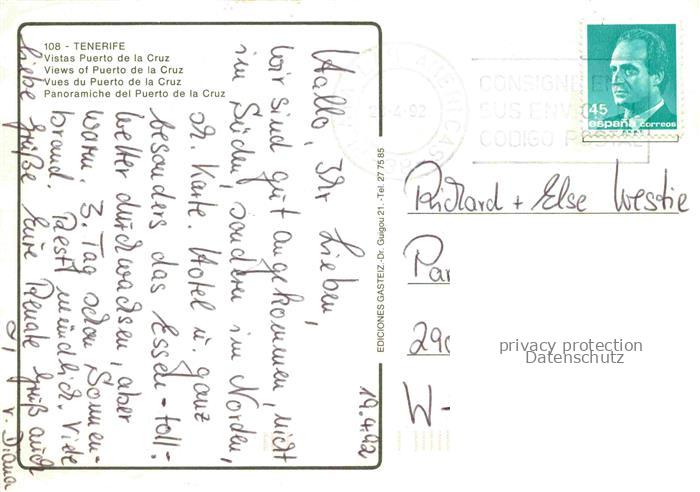 108 - TENERIFE
Vistas Puerto de la Cruz
Views of Puerto de la Cruz
Vues du Puerto de la Cruz
Panoramiche del Puerto de la Cruz
19.4.92
Hallo, Ihr Lieben,
wir sind gut angekommen, nicht
im Süden, sondern im Norden,
s. Karte. Hotel u. ganz
besonders das Essen - toll -
Wetter durchwachsen, aber
warm. 3. Tag schon Sonnen-
brand. Rest mündlich. Viele
liebe Grüße Eure Renate Gruß auch
v. Diana
EDICIONES GASTEIZ.-Dr. Guigou 21.-Tel. 27 75 85
CONSIGNE EN
SUS ENV
CODIGO POSTAL
-4-92
45
españa correos
Richard + Else Westie
Par
290
W-
privacy protection
Datenschutz